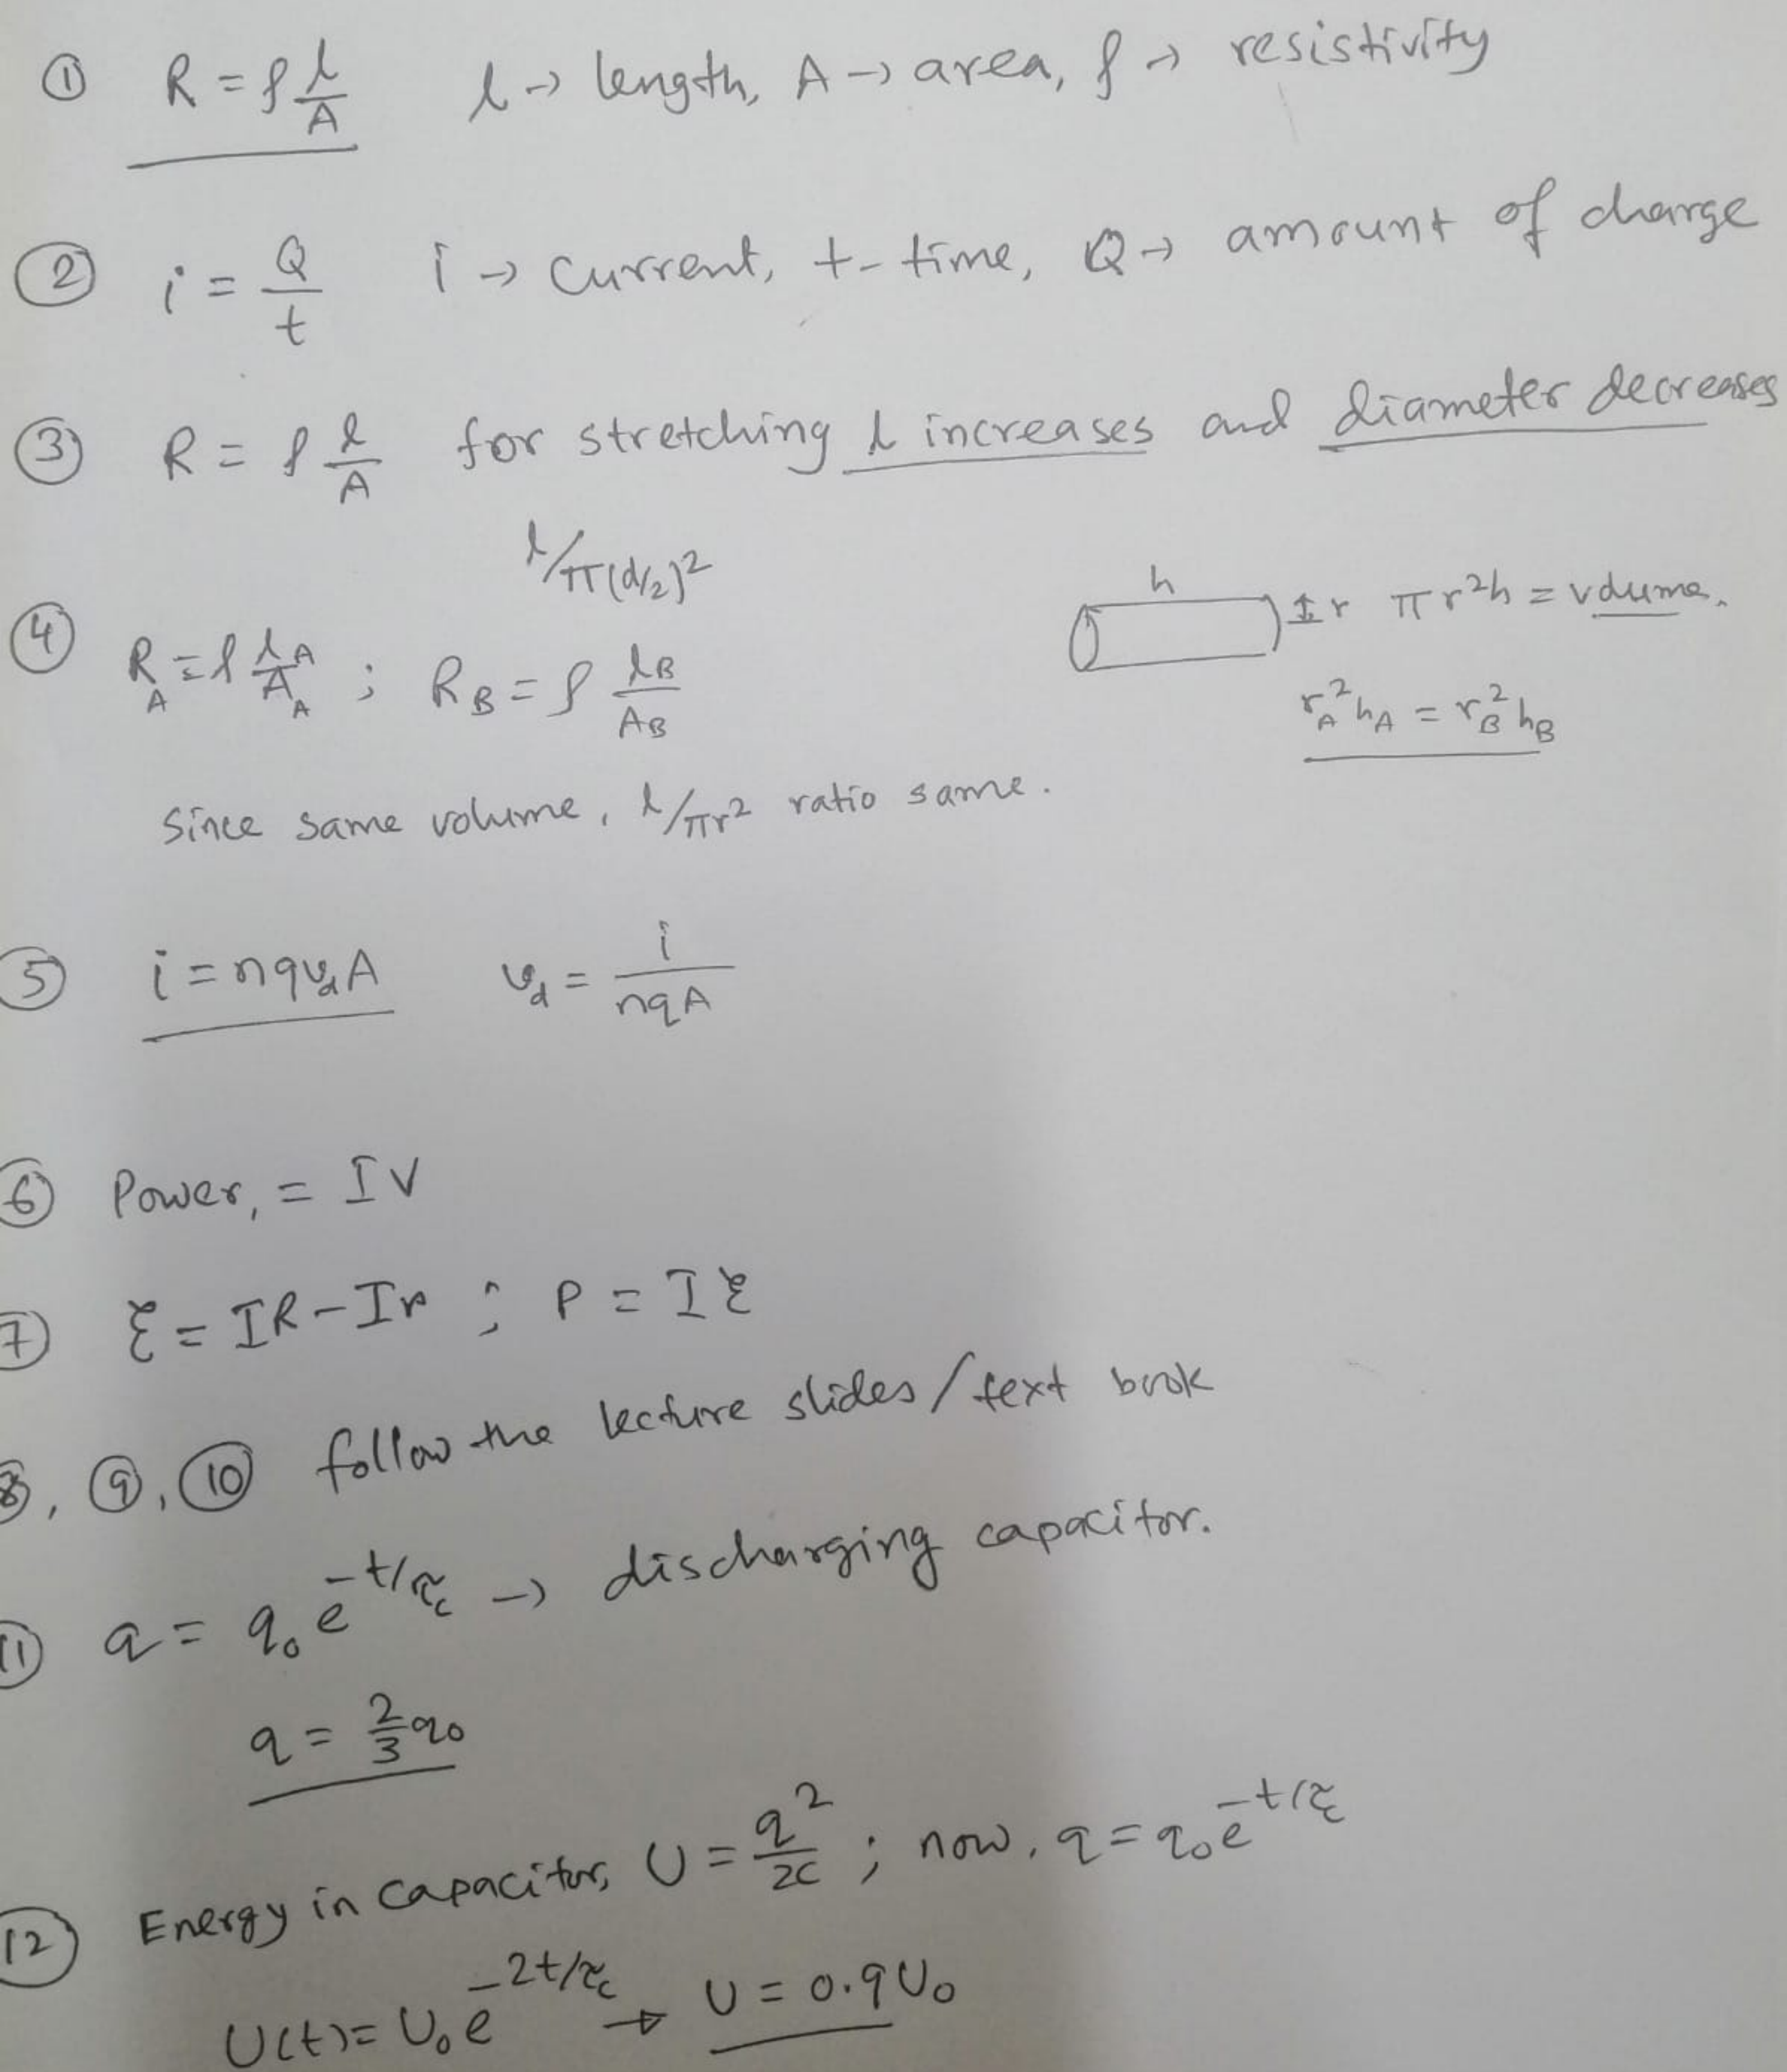 ① R = ρ l/A l → length, A → area, ρ → resistivity
② i = Q/t i → current, t - time, Q → amount of charge
③ R = ρ l/A for stretching l increases and diameter decreases
l/π(d/2)²
h r πr²h = volume.
④ R_A = ρ l_A/A_A ; R_B = ρ l_B/A_B
r_A² h_A = r_B² h_B
Since same volume, l/πr² ratio same.
⑤ i = nqv_dA v_d = i/nqA
⑥ Power, = IV
⑦ ℇ = IR - Ir ; P = Iℇ
⑧, ⑨, ⑩ follow the lecture slides/text book
⑪ q = q₀e^(-t/τ_c) → discharging capacitor.
q = 2/3 q₀
⑫ Energy in capacitor, U = q²/2C ; now, q = q₀e^(-t/τ_c)
U(t) = U₀e^(-2t/τ_c) → U = 0.9U₀